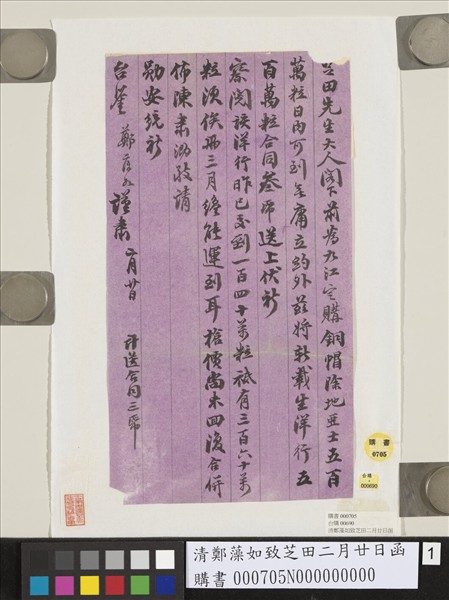 芝田先生大人閣下前為九江定購銅帽除地亞士五百
萬粒日內可到毋庸立約外茲將新載生洋行五
百萬粒合同叁帋送上伏祈
察閱該洋行昨已交到一百四十萬粒祗有三百六十萬
粒須俟西三月終能運到耳槍價尚未回復合併
佈陳肅泐敬請
勛安統祈
台鑒 鄭藻如謹肅 二月廿日 計送合同三帋
購書
0705
台購
000690
購書 000705
台購 00690
清鄭藻如致芝田二月廿日函
清鄭藻如致芝田二月廿日函
購書 000705N000000000
1